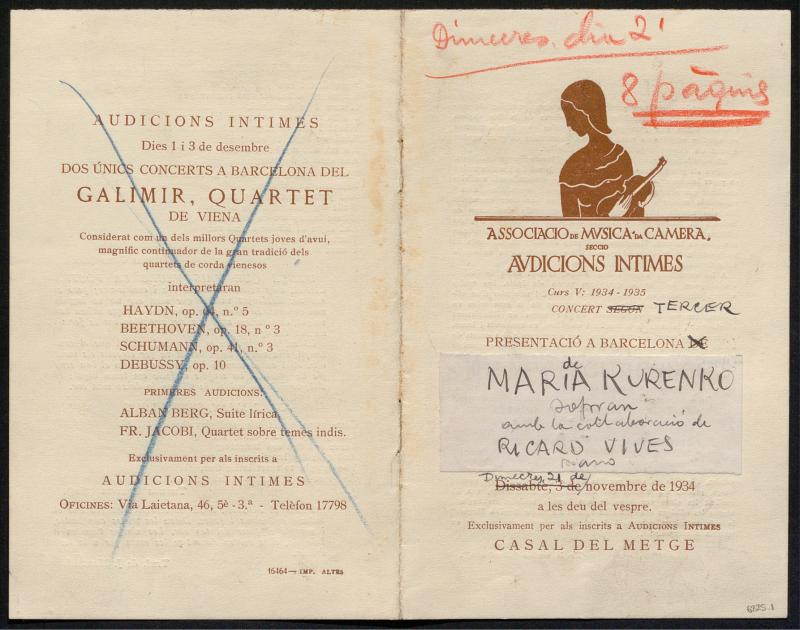 AUDICIONS INTIMES
Dies 1 i 3 de desembre
DOS ÚNICS CONCERTS A BARCELONA DEL
GALIMIR, QUARTET
DE VIENA
Considerat com un dels millors Quartets joves d'avui,
magnífic continuador de la gran tradició dels
quartets de corda vienesos
interpretaran
HAYDN, op. 64, n.º 5
BEETHOVEN, op. 18, n º 3
SCHUMANN, op. 41, n.º 3
DEBUSSY, op. 10
PRIMERES AUDICIONS:
ALBAN BERG, Suite lírica
FR. JACOBI, Quartet sobre temes indis.
Exclusivament per als inscrits a
AUDICIONS INTIMES
OFICINES: Via Laietana, 46, 5è - 3.ª - Telèfon 17798
16464 — IMP. ALTÉS
Dimecres, dia 21
8 pàgines
ASSOCIACIO DE MVSICA "DA CAMERA"
SECCIO
AVDICIONS INTIMES
Curs V: 1934 - 1935
CONCERT SEGON TERCER
PRESENTACIÓ A BARCELONA DE
de
MARIA KURENKO
sopran
amb la col·laboració de
RICARD VIVES
piano
Dimecres, 21 de
Dissabte, 3 de novembre de 1934
a les deu del vespre.
Exclusivament per als inscrits a AUDICIONS ÍNTIMES
CASAL DEL METGE
6225.1